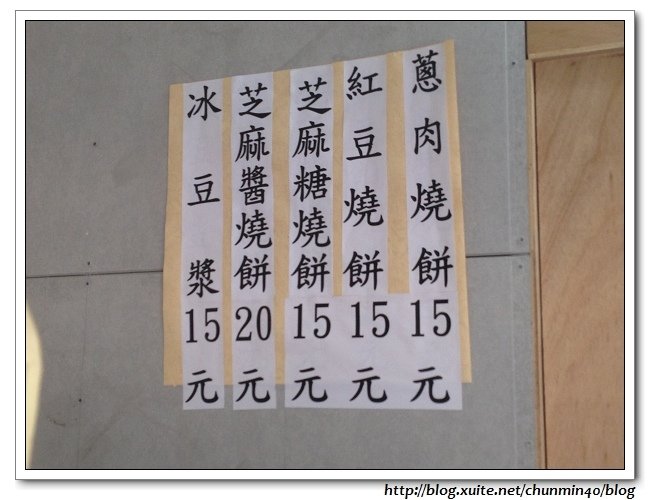 蔥肉燒餅15元
紅豆燒餅15元
芝麻糖燒餅15元
芝麻醬燒餅20元
冰豆漿15元
http://blog.xuite.net/chunmin40/blog